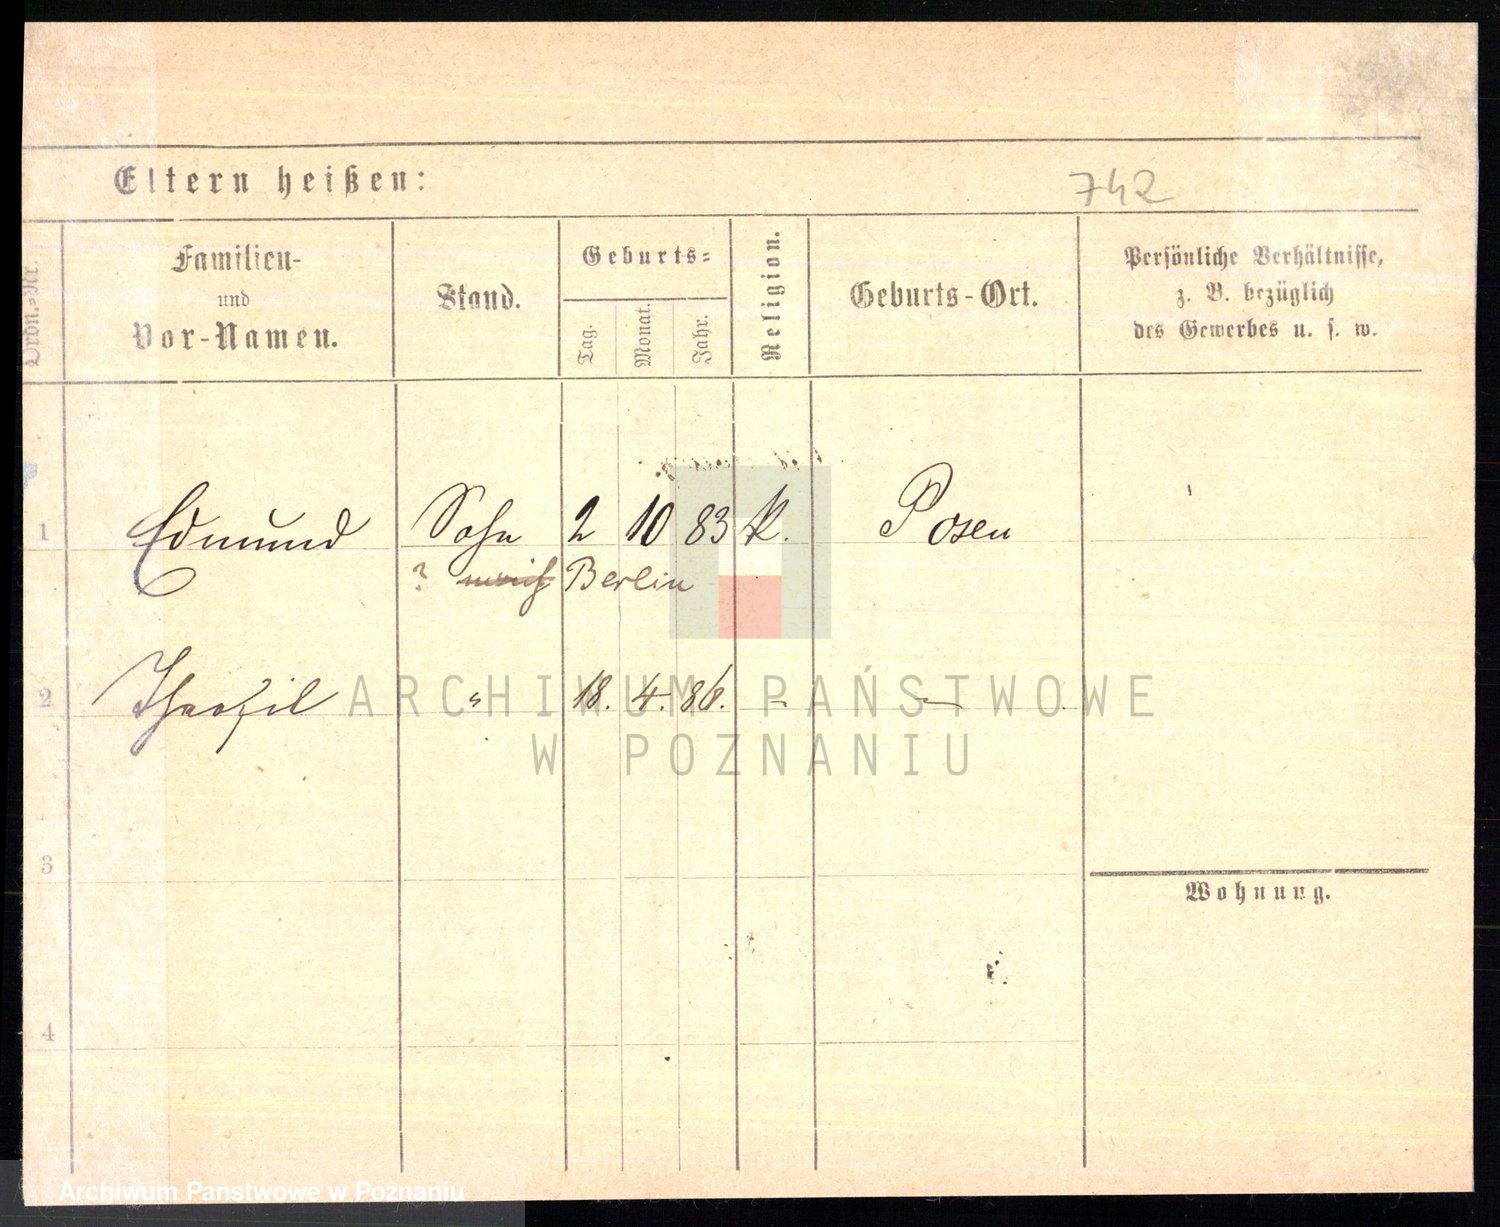 Eltern heißen:
742
Ordn.-Nr.
Familien-
und
Vor-Namen.
Stand.
Geburts-
Tag.
Monat.
Jahr.
Religion.
Geburts-Ort.
Persönliche Verhältnisse,
z. B. bezüglich
des Gewerbes u. s. w.
1 Edmund Sohn 2 10 83 k. Posen
? Berlin
2 " 18. 4. 86. - -
ARCHIWUM PAŃSTWOWE
W POZNANIU
3
Wohnung.
4
Archiwum Państwowe w Poznaniu